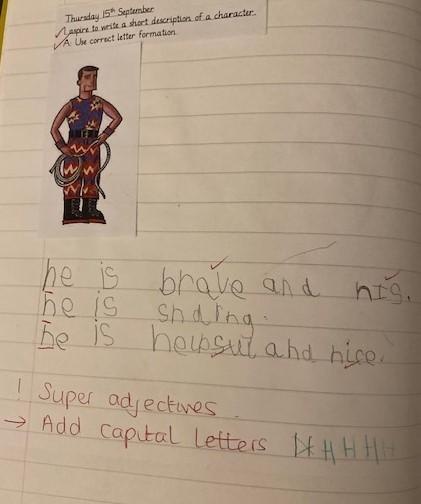 Thursday 15th September
I aspire to write a short description of a character.
A: Use correct letter formation.
he is brave and nis.
he is shdring.
he is heupsul and nice.
! Super adjectives.
→ Add capital letters H H H H H